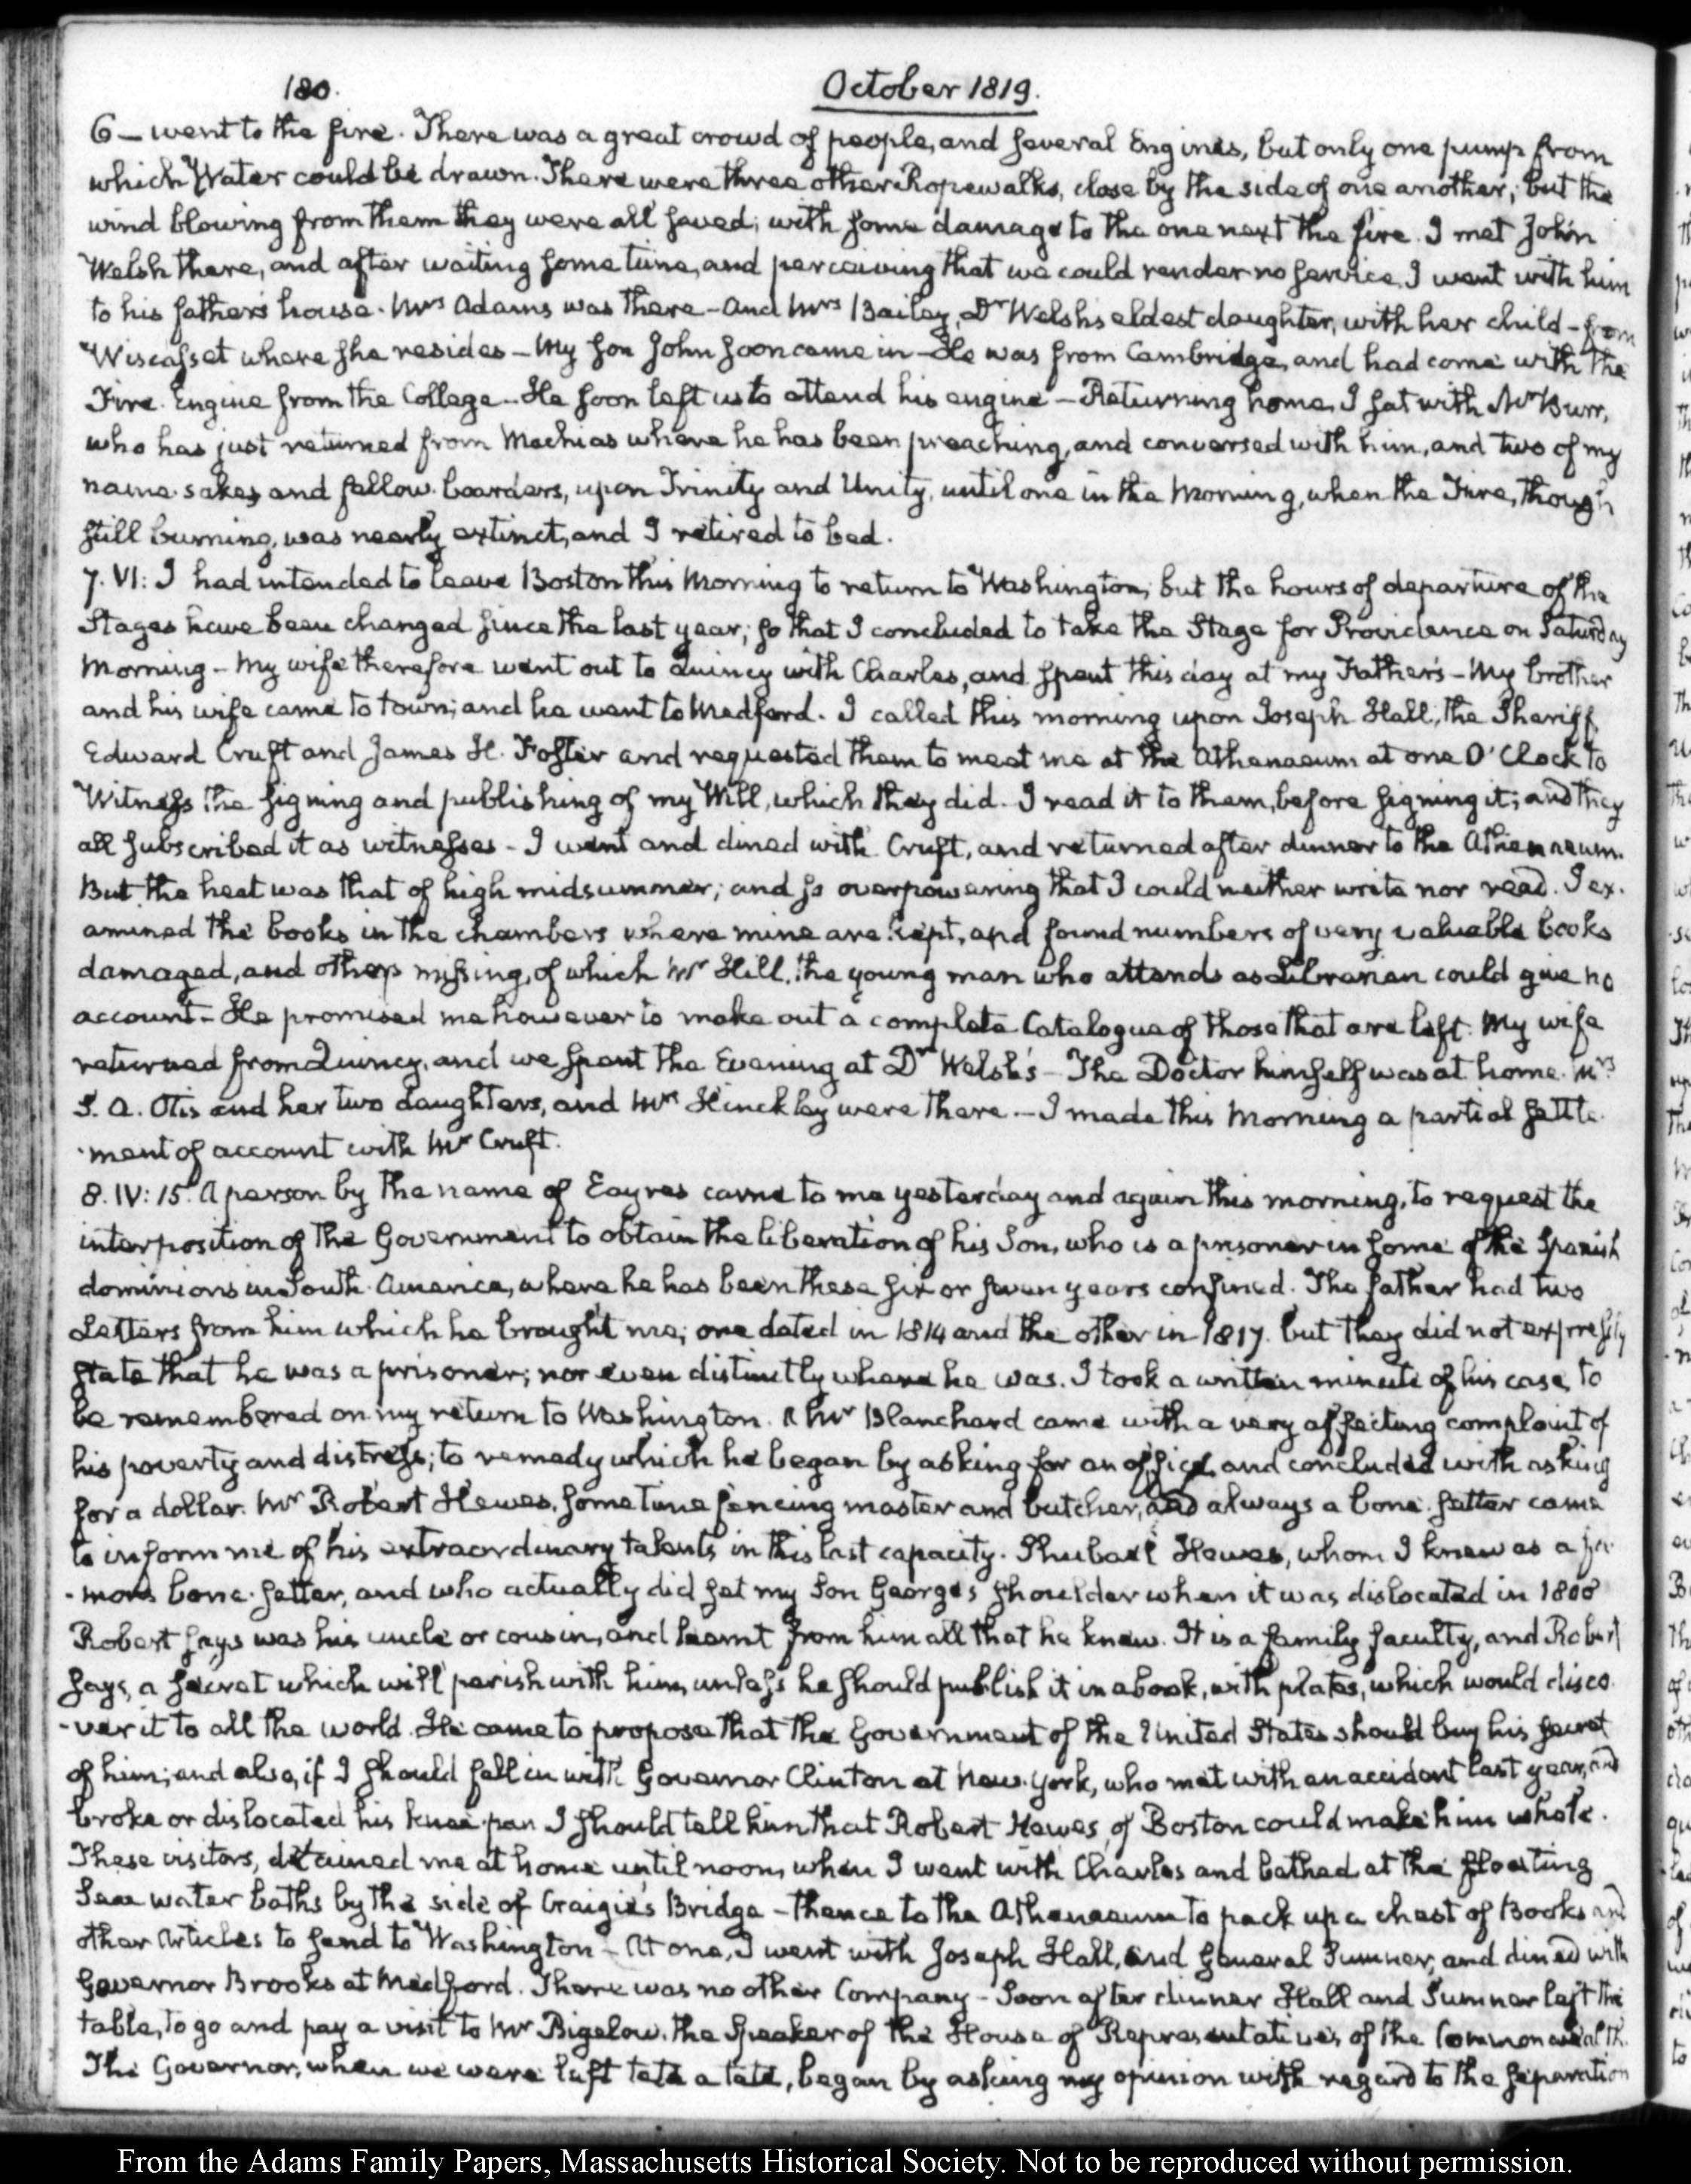 180.
October 1819.
6 – went to the fire. There was a great crowd of people, and several Engines, but only one pump from
which Water could be drawn. There were three other Ropewalks, close by the side of one another; but the
wind blowing from them they were all saved; with some damage to the one next the fire. I met John
Welsh there, and after waiting some time, and perceiving that we could render no service, I went with him
to his father's house. Mrs Adams was there – And Mrs Bailey, Dr Welsh's eldest daughter, with her child – from
Wiscasset where she resides – My Son John soon came in – He was from Cambridge, and had come with the
Fire Engine from the College – He soon left us to attend his engine – Returning home, I sat with Mr Burr,
who has just returned from Machias where he has been preaching, and conversed with him, and two of my
name-sakes and fellow-boarders, upon Trinity and Unity, until one in the Morning, when the Fire, though
still burning, was nearly extinct, and I retired to bed.
7. VI: I had intended to leave Boston this Morning to return to Washington; but the hours of departure of the
Stages have been changed since the last year; so that I concluded to take the Stage for Providence on Saturday
Morning – My wife therefore went out to Quincy with Charles, and spent this day at my Father's – My brother
and his wife came to town; and he went to Medford. I called this morning upon Joseph Hall, the Sheriff,
Edward Cruft and James H. Foster and requested them to meet me at the Athenaeum at one O'Clock to
Witness the signing and publishing of my Will, which they did. I read it to them, before signing it; and they
all subscribed it as witnesses – I went and dined with Cruft, and returned after dinner to the Athenaeum.
But the heat was that of high midsummer; and so overpowering that I could neither write nor read. I ex-
amined the books in the chambers where mine are kept, and found numbers of very valuable books
damaged, and others missing, of which Mr Hill, the young man who attends as Librarian could give no
account – He promised me however to make out a complete Catalogue of those that are left. My wife
returned from Quincy, and we spent the Evening at Dr Welsh's – The Doctor himself was at home. Mrs
S. A. Otis and her two daughters, and Mrs Hinckley were there. – I made this Morning a partial settle-
-ment of account with Mr Cruft.
8. IV: 15. A person by the name of Eayres came to me yesterday and again this morning, to request the
interposition of the Government to obtain the liberation of his Son, who is a prisoner in some of the Spanish
dominions in South-America, where he has been these six or seven years confined. The father had two
Letters from him which he brought me; one dated in 1814 and the other in 1817. but they did not expressly
state that he was a prisoner; nor even distinctly where he was. I took a written minute of his case, to
be remembered on my return to Washington. A Mr Blanchard came with a very affecting complaint of
his poverty and distress; to remedy which he began by asking for an office, and concluded with asking
for a dollar. Mr Robert Hewes, sometime fencing master and butcher, and always a bone-setter came
to inform me of his extraordinary talents in this last capacity. Shubael Hewes, whom I knew as a fa-
-mous bone-setter, and who actually did set my Son George's shoulder when it was dislocated in 1808
Robert says was his uncle or cousin, and learnt from him all that he knew. It is a family faculty, and Robert
says, a secret which will perish with him, unless he should publish it in a book, with plates, which would disco-
-ver it to all the world. He came to propose that the Government of the United States should buy his secret
of him; and also, if I should fall in with Governor Clinton at New-York, who met with an accident last year, and
broke or dislocated his knee-pan I should tell him that Robert Hewes, of Boston could make him whole.
These visitors, detained me at home until noon, when I went with Charles and bathed at the floating
Sea water baths by the side of Craigie's Bridge – thence to the Athenaeum to pack up a chest of Books and
other Articles to send to Washington – At one, I went with Joseph Hall, and General Sumner, and dined with
Governor Brooks at Medford. There was no other Company – Soon after dinner Hall and Sumner left the
table, to go and pay a visit to Mr Bigelow, the Speaker of the House of Representatives of the Commonwealth.
The Governor, when we were left tete a tete, began by asking my opinion with regard to the separation
From the Adams Family Papers, Massachusetts Historical Society. Not to be reproduced without permission.